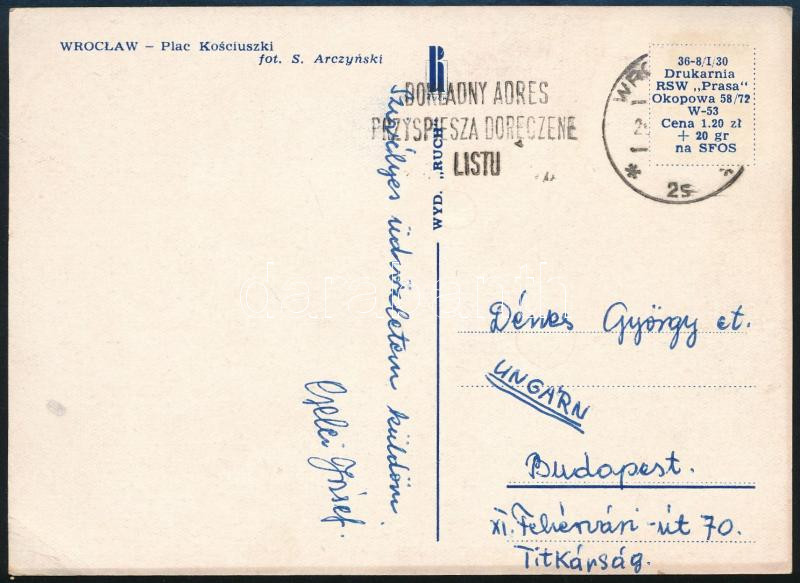 WROCŁAW – Plac Kościuszki
fot. S. Arczyński
DOKŁADNY ADRES
PRZYSPIESZA DORĘCZENE
LISTU
2s
36-8/I/30
Drukarnia
RSW „Prasa"
Okopowa 58/72
W-53
Cena 1.20 zł
+ 20 gr
na SFOS
WYD. „RUCH"
üdvözletem küldöm
József.
Dénes György et.
UNGARN
Budapest.
XI. Fehérvári-út 70.
Titkárság.